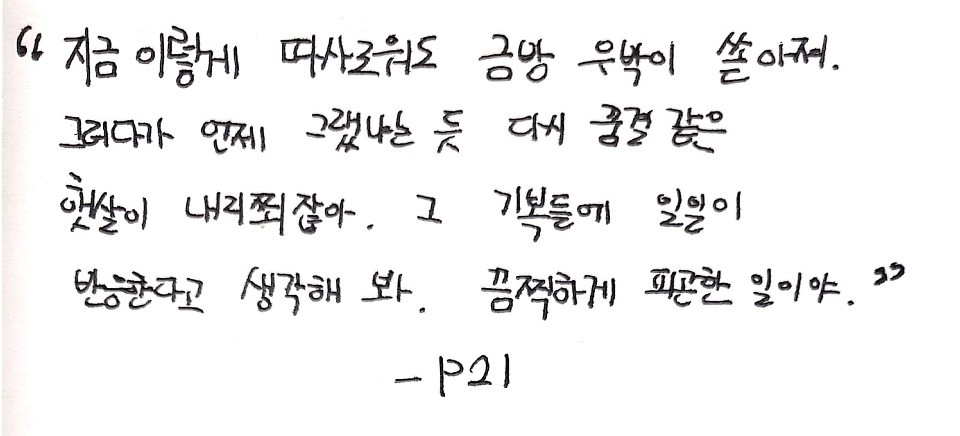 “ 지금 이렇게 따사로워도 금방 우박이 쏟아져.
그러다가 언제 그랬냐는 듯 다시 꿈결 같은
햇살이 내리쬐잖아. 그 기복들에 일일이
반응한다고 생각해 봐. 끔찍하게 피곤한 일이야. ”
- P21